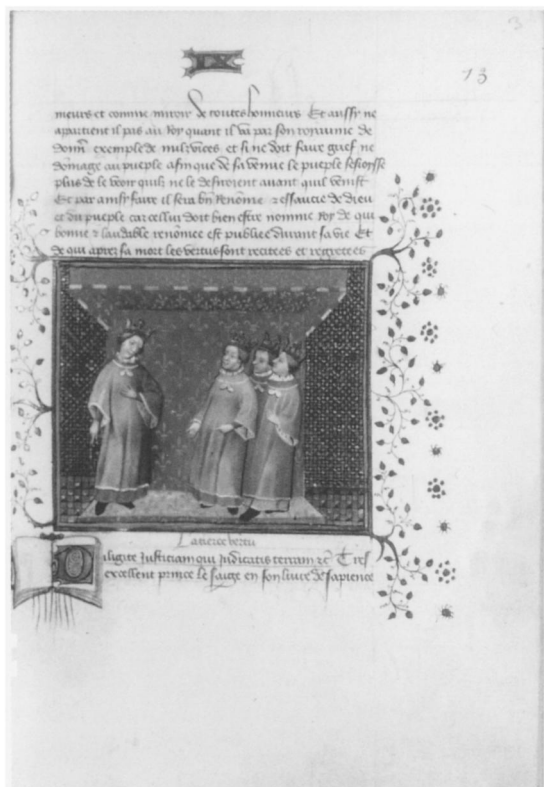 3
IX
13
meurs et comme miroir de toutes honneurs Et aussy ne
apartient il pas au Roy quant il va par son royaume de
donn̄ exemple de mulz vices et si ne doit faire grief ne
dōmage au pueple afin que de sa venue le pueple sesioysse
plus de le veoir quilz ne le desiroient auant quil venist
Et par ainsy faire il sera bn̄ Renōme essaucie de dieu
et du pueple car cellui doit bien estre nomme Roy de qui
bonne & laudable renōmee est publiee durant sa vie Et
de qui aprez sa mort les vertus sont recitees et regretees
La tierce vertu
Diligite Justiciam qui Judicatis terram
excellent prince le saige en son livre de sapience